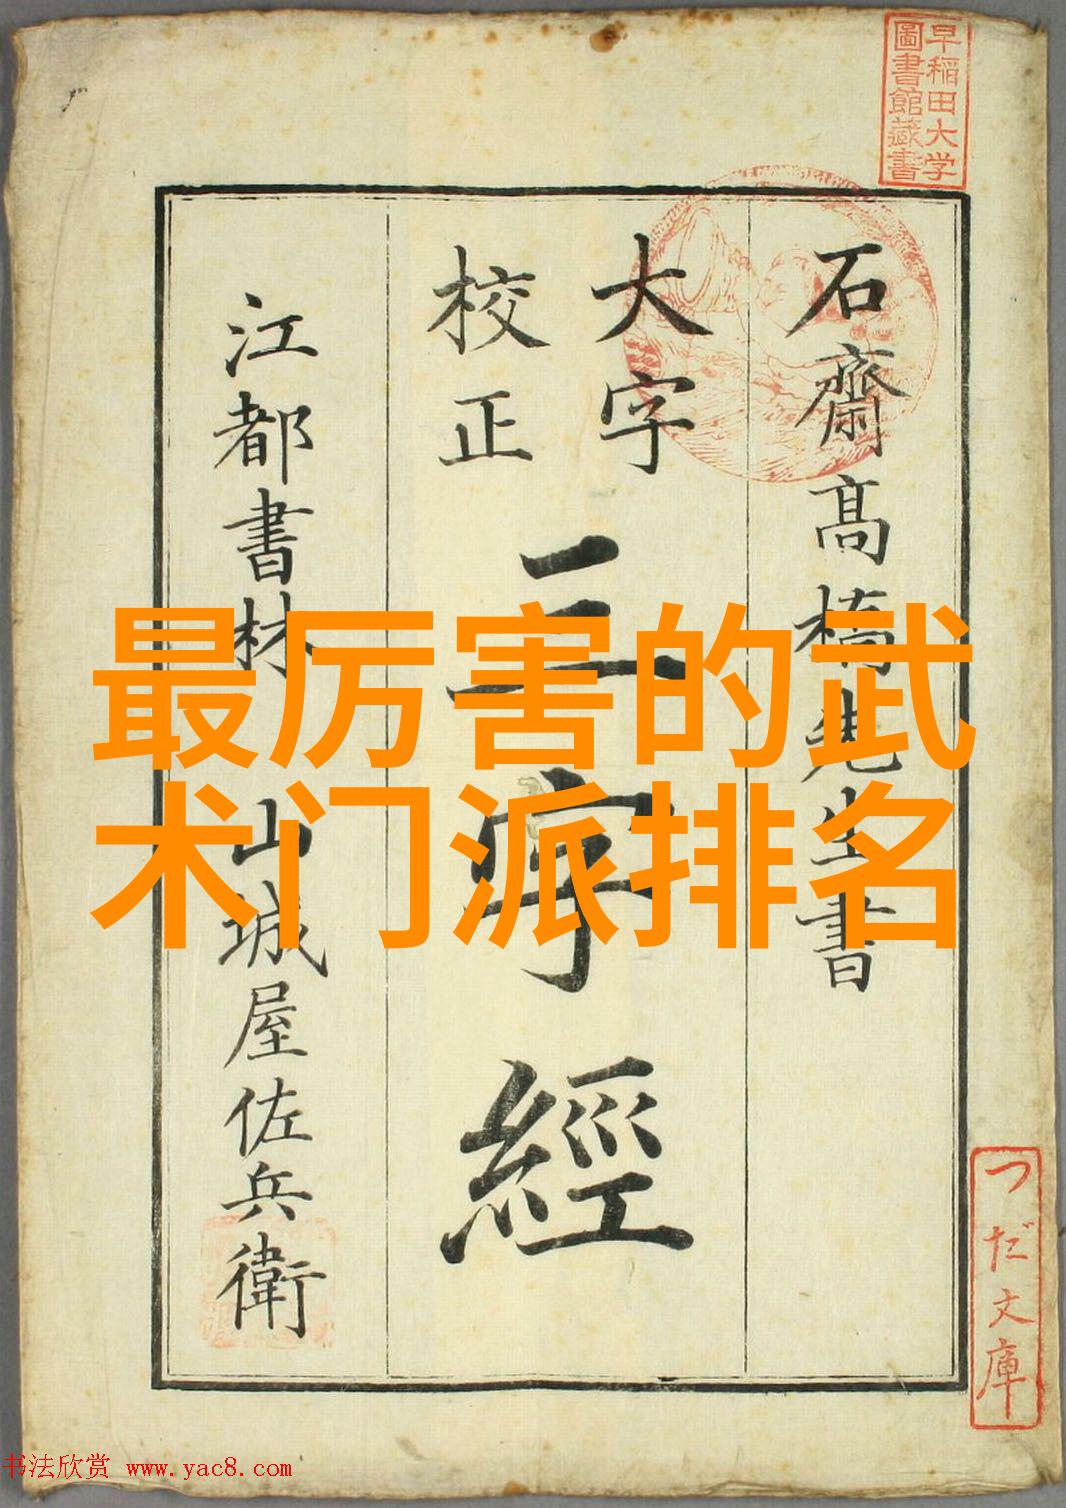 早稲田大学
圖書館藏書
石齋高橋先生書
大字
校正
三字經
江都書林 山城屋佐兵衛
最厉害的武
术门派排名
つだ文庫
书法欣赏 www.yac8.com